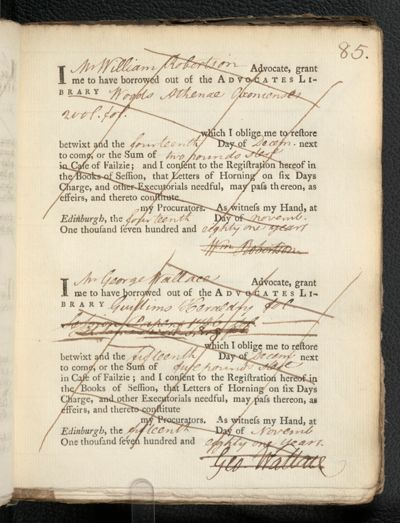 85.
I Mr William Robertson Advocate, grant
me to have borrowed out of the ADVOCATES LI-
BRARY Woods Athenae Oxonienses
2 vol. fol.
which I oblige me to reſtore
betwixt and the fourteenth Day of Decem. next
to come, or the Sum of two pounds Sterl
in Caſe of Failzie; and I conſent to the Regiſtration hereof in
the Books of Seſſion, that Letters of Horning on ſix Days
Charge, and other Executorials needful, may paſs thereon, as
effeirs, and thereto conſtitute
my Procurators. As witneſs my Hand, at
Edinburgh, the fourteenth Day of Novemb.
One thouſand ſeven hundred and eighty one years
Wm Robertson
I Mr George Wallace Advocate, grant
me to have borrowed out of the ADVOCATES LI-
BRARY Guillims Heraldry fol.
which I oblige me to reſtore
betwixt and the fifteenth Day of Decem. next
to come, or the Sum of five pounds Sterl
in Caſe of Failzie; and I conſent to the Regiſtration hereof in
the Books of Seſſion, that Letters of Horning on ſix Days
Charge, and other Executorials needful, may paſs thereon, as
effeirs, and thereto conſtitute
my Procurators. As witneſs my Hand, at
Edinburgh, the fifteenth Day of Novemb
One thouſand ſeven hundred and eighty one years.
Geo. Wallace